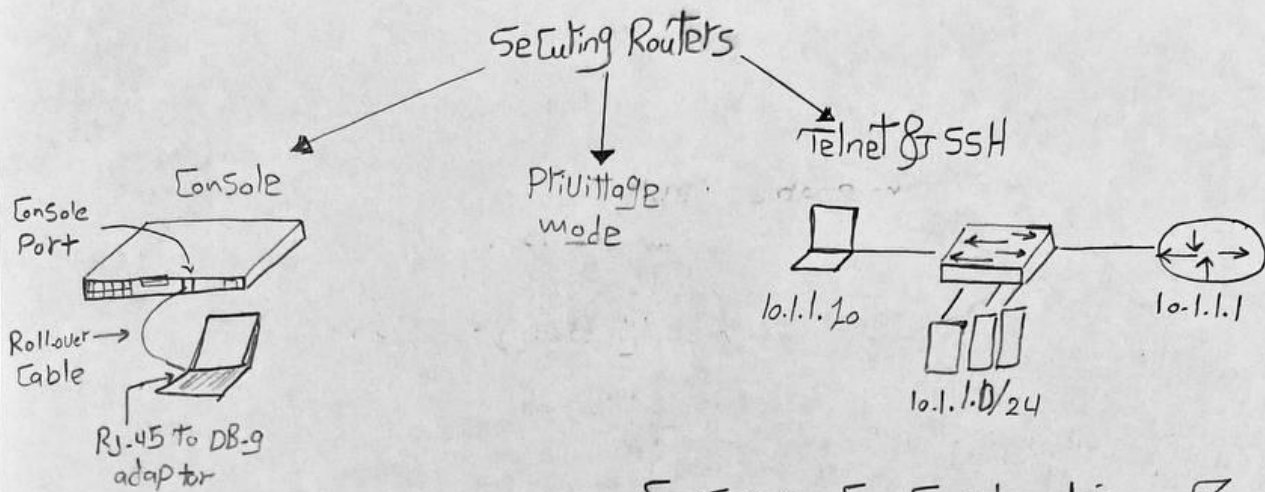 Securing Routers
Console
Console
Port
Rollover
Cable
RJ-45 to DB-9
adaptor
Privittage
mode
Telnet & SSH
10.1.1.10
10.1.1.1
10.1.1.0/24